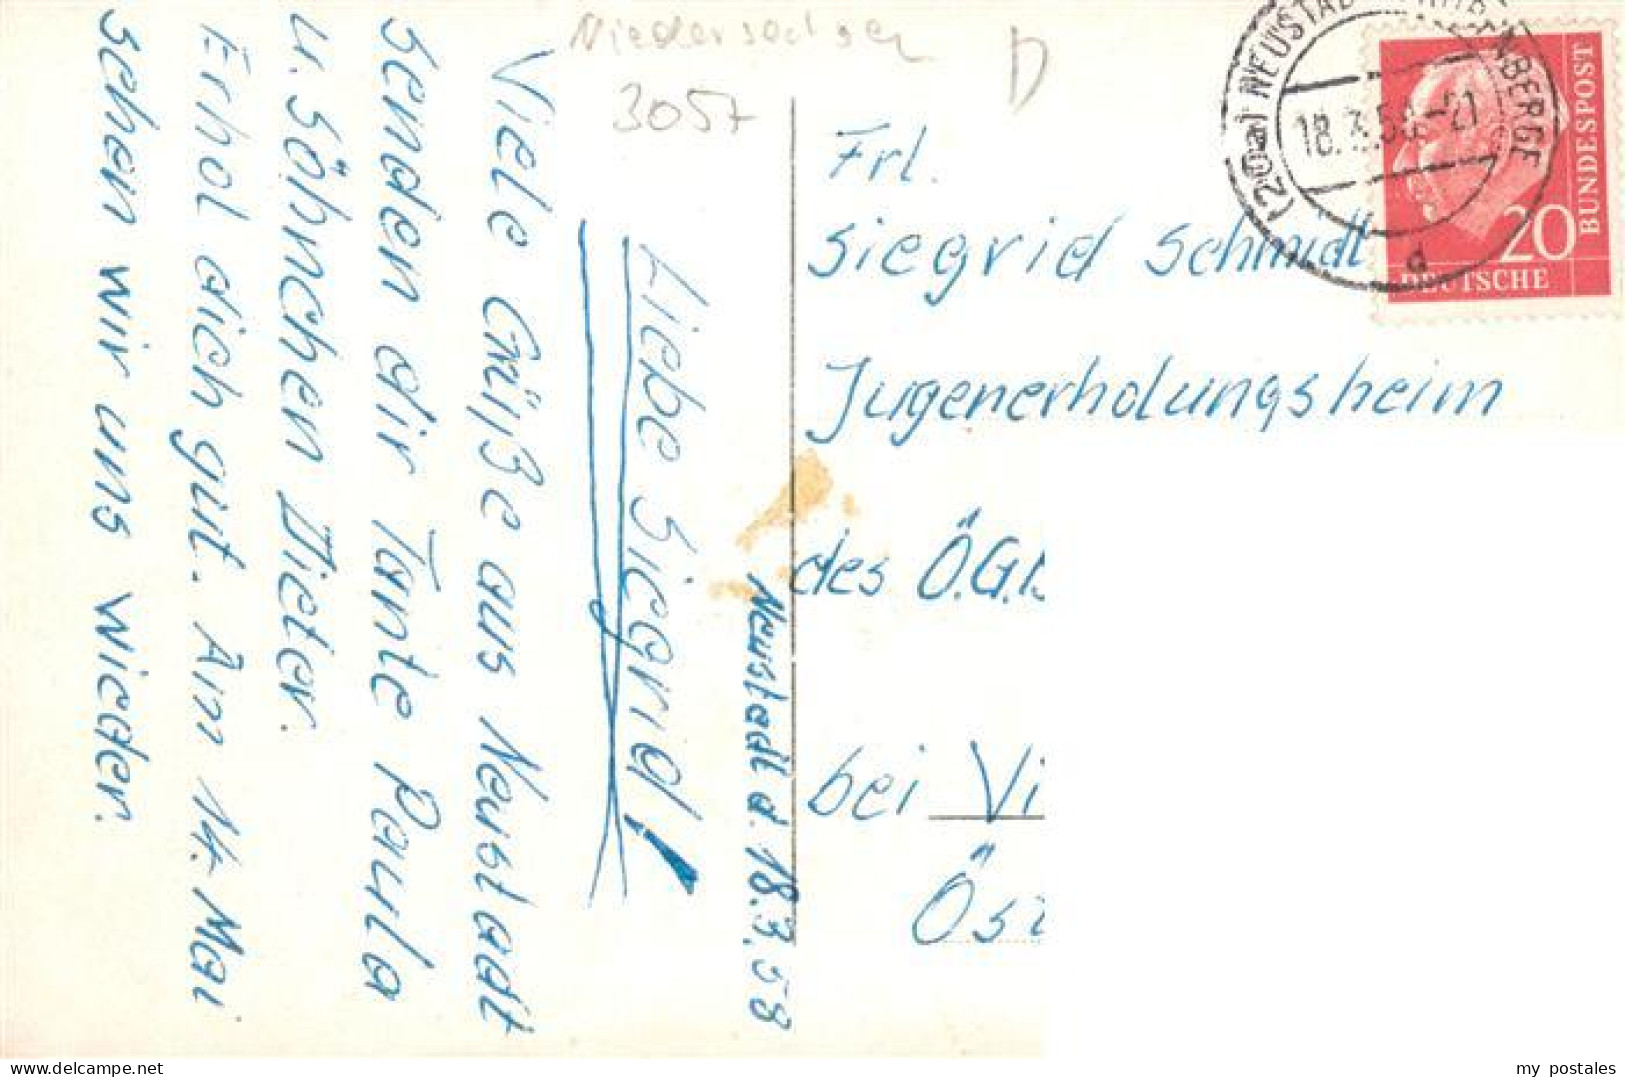 Niedersachsen
3057
D
Neustadt d. 18.3.58
Liebe Sigrid!
Viele Grüße aus Neustadt
senden dir Tante Paula
u. Söhnchen Dieter.
Erhol dich gut. Am 14. Mai
sehen wir uns wieder.
Frl.
Siegrid Schmidt
Jugenerholungsheim
des Ö.G.
bei Vi
Öst
(20a) NEUSTADT RÜBENBERGE
18.3.58-21
d
20
DEUTSCHE
BUNDESPOST
www.delcampe.net
my_postales